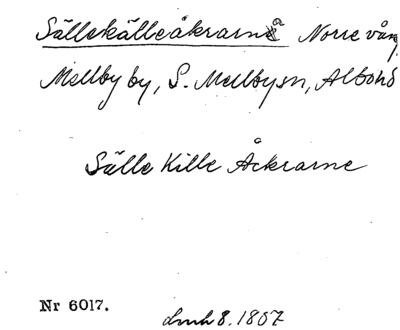 Sällekälleåkrarna Norre vång
Mellby by, S. Mellby sn, Albo hd
Sälle Kille Åckrarne
Nr 6017.
Lmh 8. 1807